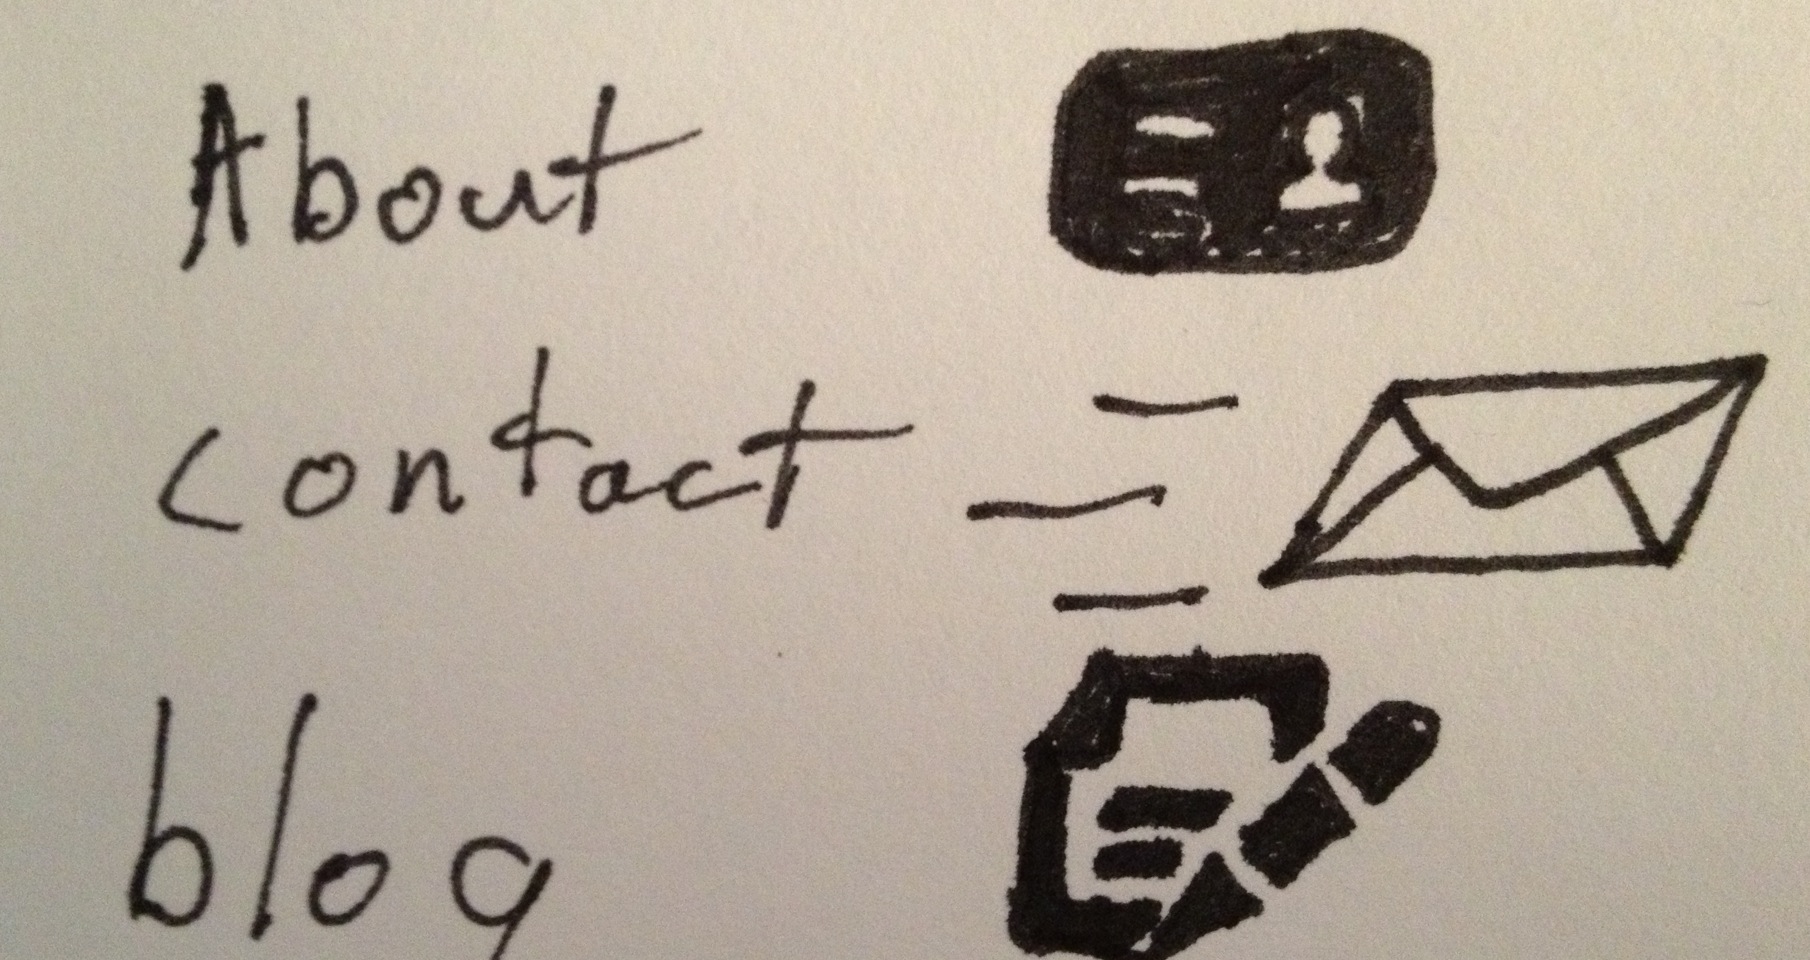 About
contact
blog